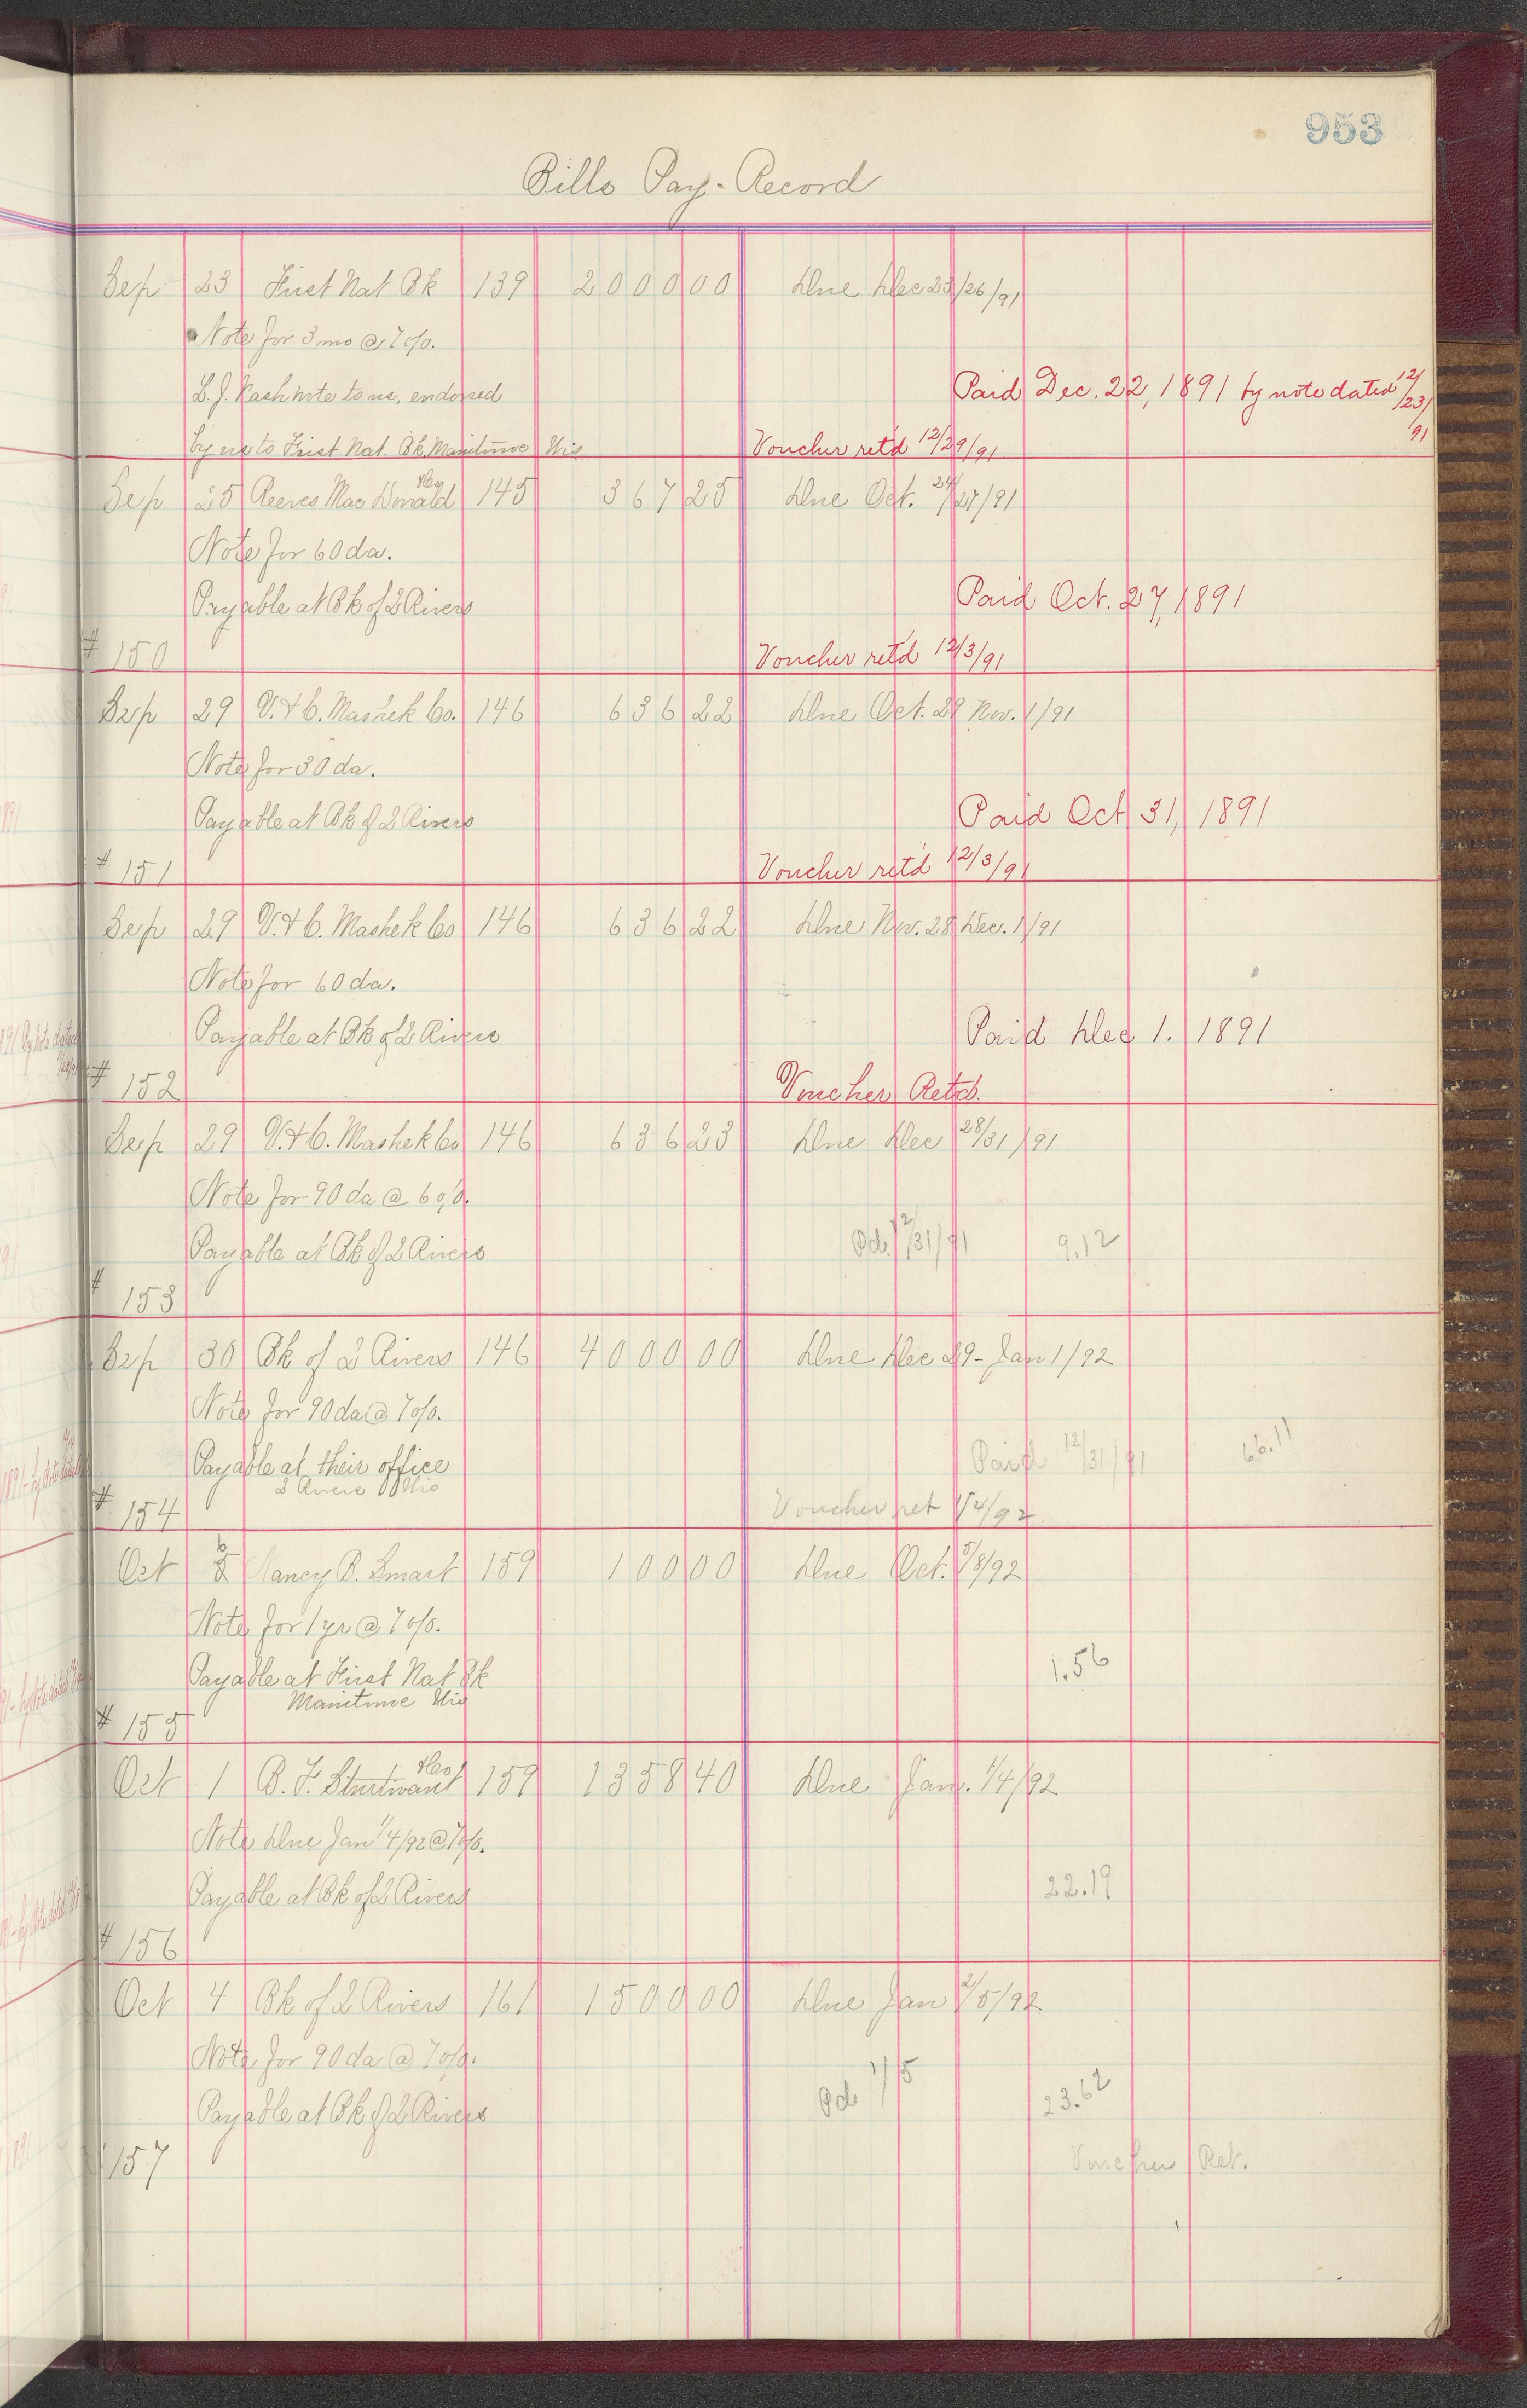 953
Bills Pay-Record
Sep 23 First Nat Bk 139 2000 00 Due Dec 23/26/91
Note for 3 mo @ 7 o/o.
L. J. Nash note to us, endorsed Paid Dec. 22, 1891 by note dated 12/23/91
by us to First Nat. Bk. Manitowoc Wis Voucher ret'd 12/29/91
Sep 25 Reeves MacDonald 145 367 25 Due Oct. 24/27/91
Note for 60 da.
Payable at Bk of 2 Rivers Paid Oct. 27, 1891
# 150 Voucher ret'd 12/3/91
Sep 29 V. & C. Mashek Co. 146 636 22 Due Oct. 29 Nov. 1/91
Note for 30 da.
Payable at Bk of 2 Rivers Paid Oct 31, 1891
# 151 Voucher ret'd 12/3/91
Sep 29 V. & C. Mashek Co 146 636 22 Due Nov. 28 Dec. 1/91
Note for 60 da.
Payable at Bk of 2 Rivers Paid Dec 1. 1891
# 152 Voucher Retd.
Sep 29 V. & C. Mashek Co 146 636 23 Due Dec 28/31/91
Note for 90 da @ 6 o/o.
Payable at Bk of 2 Rivers Pd. 12/31/91 9.12
# 153
Sep 30 Bk of 2 Rivers 146 4000 00 Due Dec 29 - Jan 1/92
Note for 90 da @ 7 o/o.
Payable at their office Paid 12/31/91 66.11
2 Rivers Wis
# 154 Voucher ret 1/2/92
Oct 5 Nancy B. Smart 159 100 00 Due Oct. 5/8/92
Note for 1 yr @ 7 o/o.
Payable at First Nat Bk 1.56
Manitowoc Wis
# 155
Oct 1 B. F. Sturtivant 159 1358 40 Due Jan. 1/4/92
Note Due Jan 1/4/92 @ 7 o/o.
Payable at Bk of 2 Rivers 22.19
# 156
Oct 4 Bk of 2 Rivers 161 1500 00 Due Jan 2/5/92
Note for 90 da @ 7 o/o.
Payable at Bk of 2 Rivers Pd 1/5 23.62
# 157 Voucher Ret.